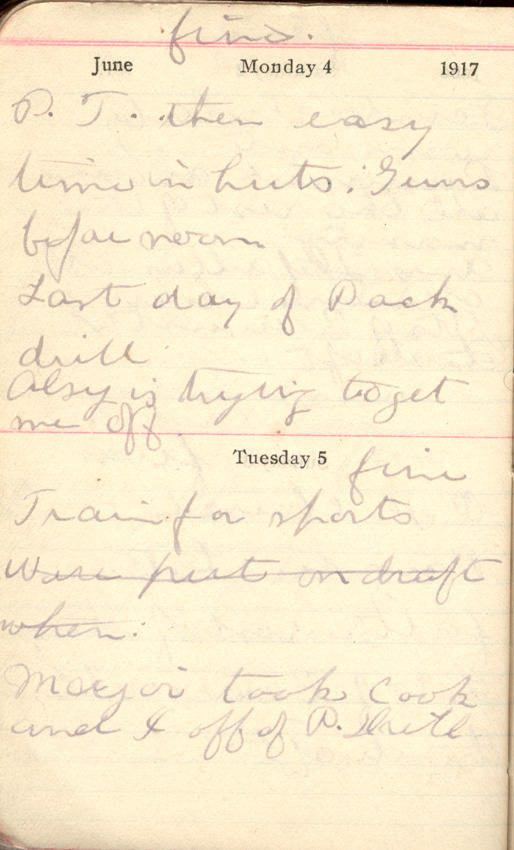 fine.
June Monday 4 1917
P. T. then easy
time in huts. Guns
before noon
Last day of Pack
drill
Alsy is trying to get
me off
Tuesday 5 fine
Train for sports
Ware put on draft
when.
Mayor took Cook
and I off of P. Drill